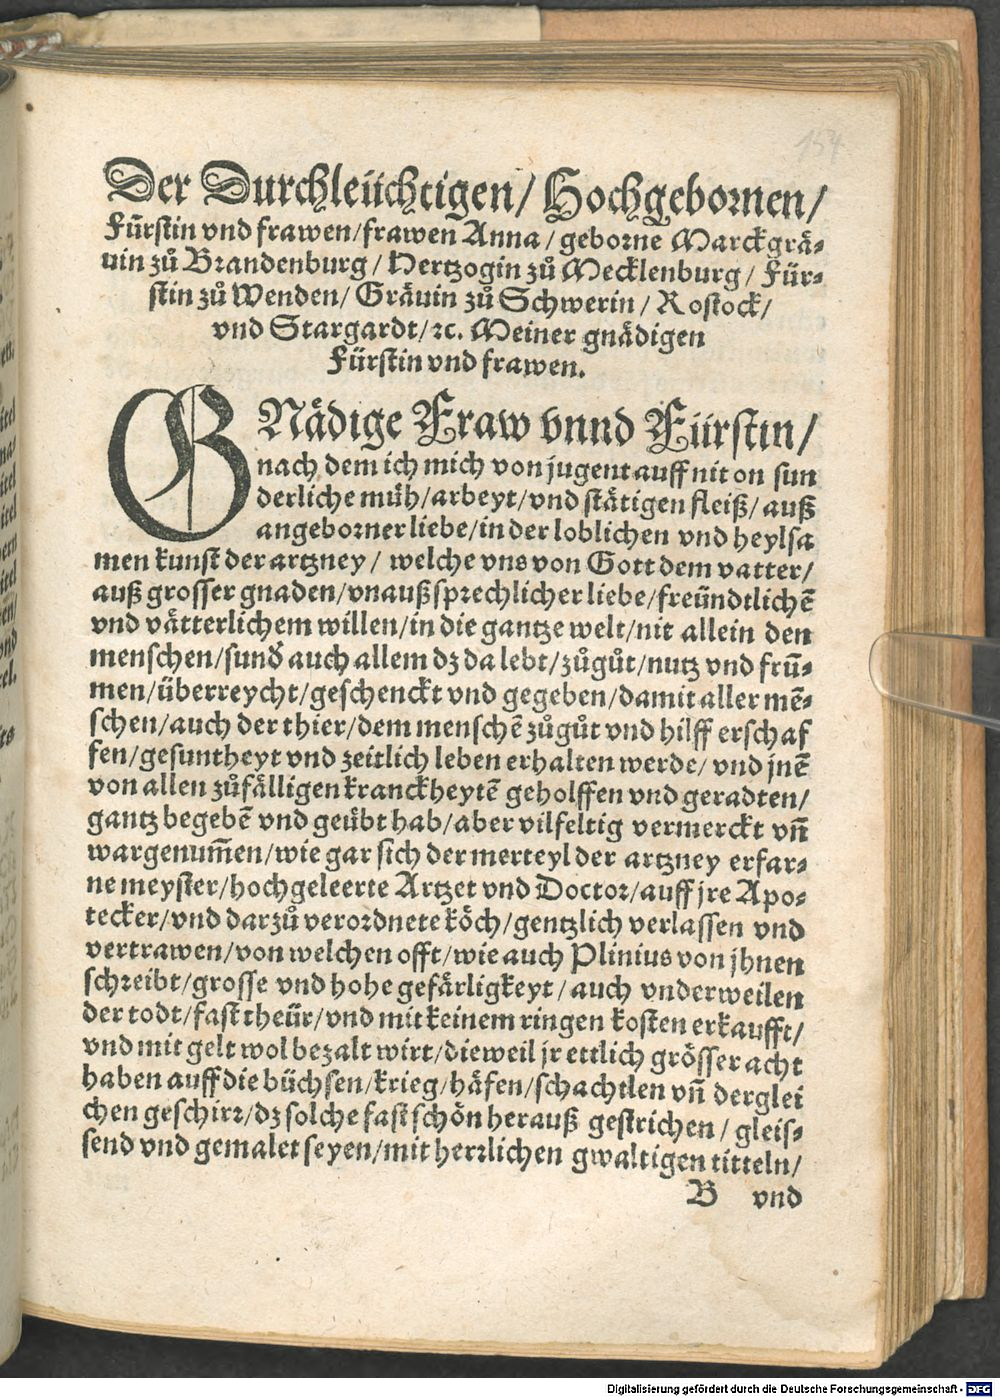 154
Der Durchleüchtigen/ Hochgebornen/
Fürstin vnd frawen/frawen Anna/ geborne Marckgrä-
uin zů Brandenburg/ Hertzogin zů Mecklenburg/ Für-
stin zů Wenden/ Gräuin zů Schwerin/ Rostock/
vnd Stargardt/ꝛc. Meiner gnädigen
Fürstin vnd frawen.
GNädige Fraw vnnd Fürstin/
nach dem ich mich von jugent auff nit on sun
derliche müh/arbeyt/vnd stätigen fleiß/ auß
angeborner liebe/in der loblichen vnd heylsa
men kunst der artzney/ welche vns von Gott dem vatter/
auß grosser gnaden/vnaußsprechlicher liebe/freündtlichē
vnd vätterlichem willen/in die gantze welt/nit allein den
menschen/sund̄ auch allem dz da lebt/zůgůt/nutz vnd frū-
men/überreycht/geschenckt vnd gegeben/damit aller mē-
schen/auch der thier/dem menschē zůgůt vnd hilff erschaf
fen/gesuntheyt vnd zeitlich leben erhalten werde/ vnd jnē
von allen zůfälligen kranckheytē geholffen vnd geradten/
gantz begebē vnd geübt hab/aber vilfeltig vermerckt vñ
wargenum̄en/wie gar sich der merteyl der artzney erfar-
ne meyster/hochgeleerte Artzet vnd Doctor/auff jre Apo-
tecker/vnd darzů verordnete köch/gentzlich verlassen vnd
vertrawen/von welchen offt/wie auch Plinius von jhnen
schreibt/grosse vnd hohe gefärligkeyt/ auch vnderweilen
der todt/fast theür/vnd mit keinem ringen kosten erkaufft/
vnd mit gelt wol bezalt wirt/dieweil jr ettlich grösser acht
haben auff die büchsen/krieg/häfen/schachtlen vñ derglei
chen geschirr/dz solche fast schön herauß gestrichen/ gleis-
send vnd gemalet seyen/mit herrlichen gwaltigen titteln/
B vnd
Digitalisierung gefördert durch die Deutsche Forschungsgemeinschaft - DFG